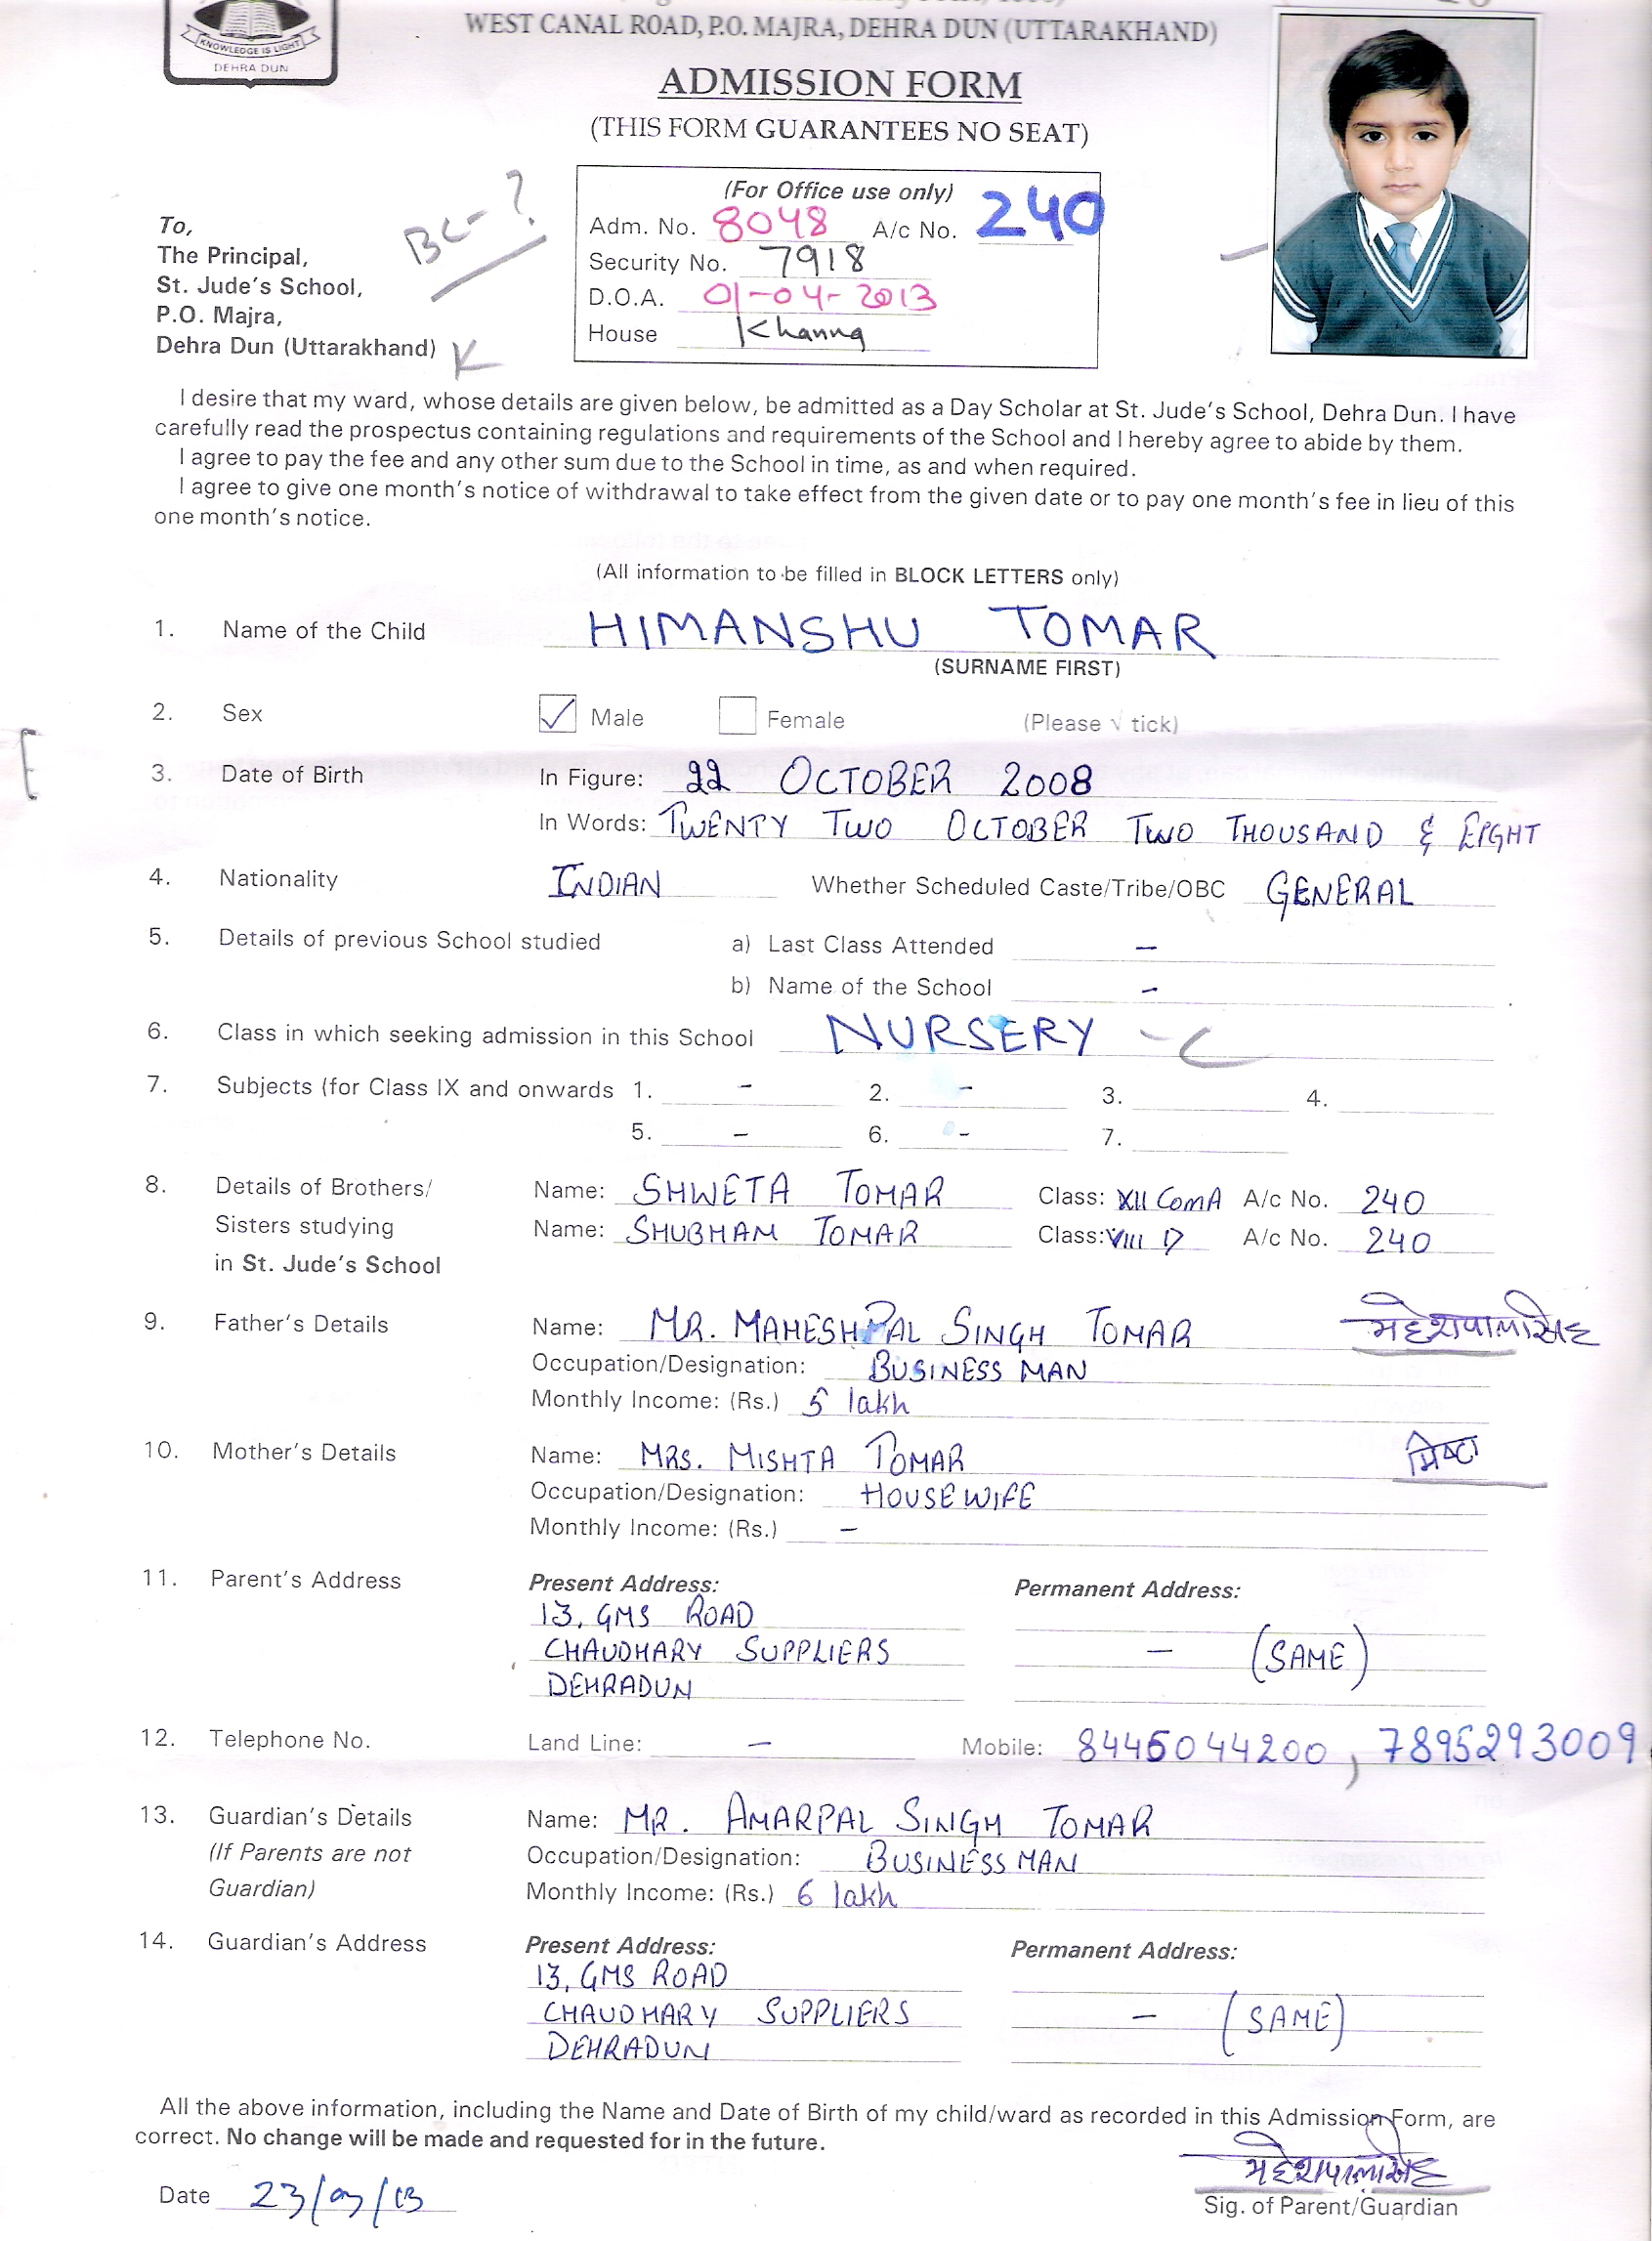 KNOWLEDGE IS LIGHT
DEHRA DUN
WEST CANAL ROAD, P.O. MAJRA, DEHRA DUN (UTTARAKHAND)
ADMISSION FORM
(THIS FORM GUARANTEES NO SEAT)
BC-?
(For Office use only)
Adm. No. 8048 A/c No. 240
Security No. 7918
D.O.A. 01-04-2013
House Khanna
To,
The Principal,
St. Jude's School,
P.O. Majra,
Dehra Dun (Uttarakhand) K
I desire that my ward, whose details are given below, be admitted as a Day Scholar at St. Jude's School, Dehra Dun. I have
carefully read the prospectus containing regulations and requirements of the School and I hereby agree to abide by them.
I agree to pay the fee and any other sum due to the School in time, as and when required.
I agree to give one month's notice of withdrawal to take effect from the given date or to pay one month's fee in lieu of this
one month's notice.
(All information to be filled in BLOCK LETTERS only)
1. Name of the Child HIMANSHU TOMAR
(SURNAME FIRST)
2. Sex ✓ Male Female (Please √ tick)
3. Date of Birth In Figure: 22 OCTOBER 2008
In Words: TWENTY TWO OCTOBER TWO THOUSAND & EIGHT
4. Nationality INDIAN Whether Scheduled Caste/Tribe/OBC GENERAL
5. Details of previous School studied a) Last Class Attended –
b) Name of the School –
6. Class in which seeking admission in this School NURSERY – C
7. Subjects (for Class IX and onwards 1. – 2. – 3. 4.
5. – 6. – 7.
8. Details of Brothers/ Name: SHWETA TOMAR Class: XII ComA A/c No. 240
Sisters studying Name: SHUBHAM TOMAR Class: VIII D A/c No. 240
in St. Jude's School
9. Father's Details Name: MR. MAHESHPAL SINGH TOMAR महेशपालसिंह
Occupation/Designation: BUSINESS MAN
Monthly Income: (Rs.) 5 lakh
10. Mother's Details Name: MRS. MISHTA TOMAR मिष्टा
Occupation/Designation: HOUSE WIFE
Monthly Income: (Rs.) –
11. Parent's Address Present Address: Permanent Address:
13, GMS ROAD
CHAUDHARY SUPPLIERS – (SAME)
DEHRADUN
12. Telephone No. Land Line: – Mobile: 8445044200, 7895293009
13. Guardian's Details Name: MR. AMARPAL SINGH TOMAR
(If Parents are not Occupation/Designation: BUSINESS MAN
Guardian) Monthly Income: (Rs.) 6 lakh
14. Guardian's Address Present Address: Permanent Address:
13, GMS ROAD
CHAUDHARY SUPPLIERS – (SAME)
DEHRADUN
All the above information, including the Name and Date of Birth of my child/ward as recorded in this Admission Form, are
correct. No change will be made and requested for in the future.
महेशपालसिंह
Date 23/03/13 Sig. of Parent/Guardian